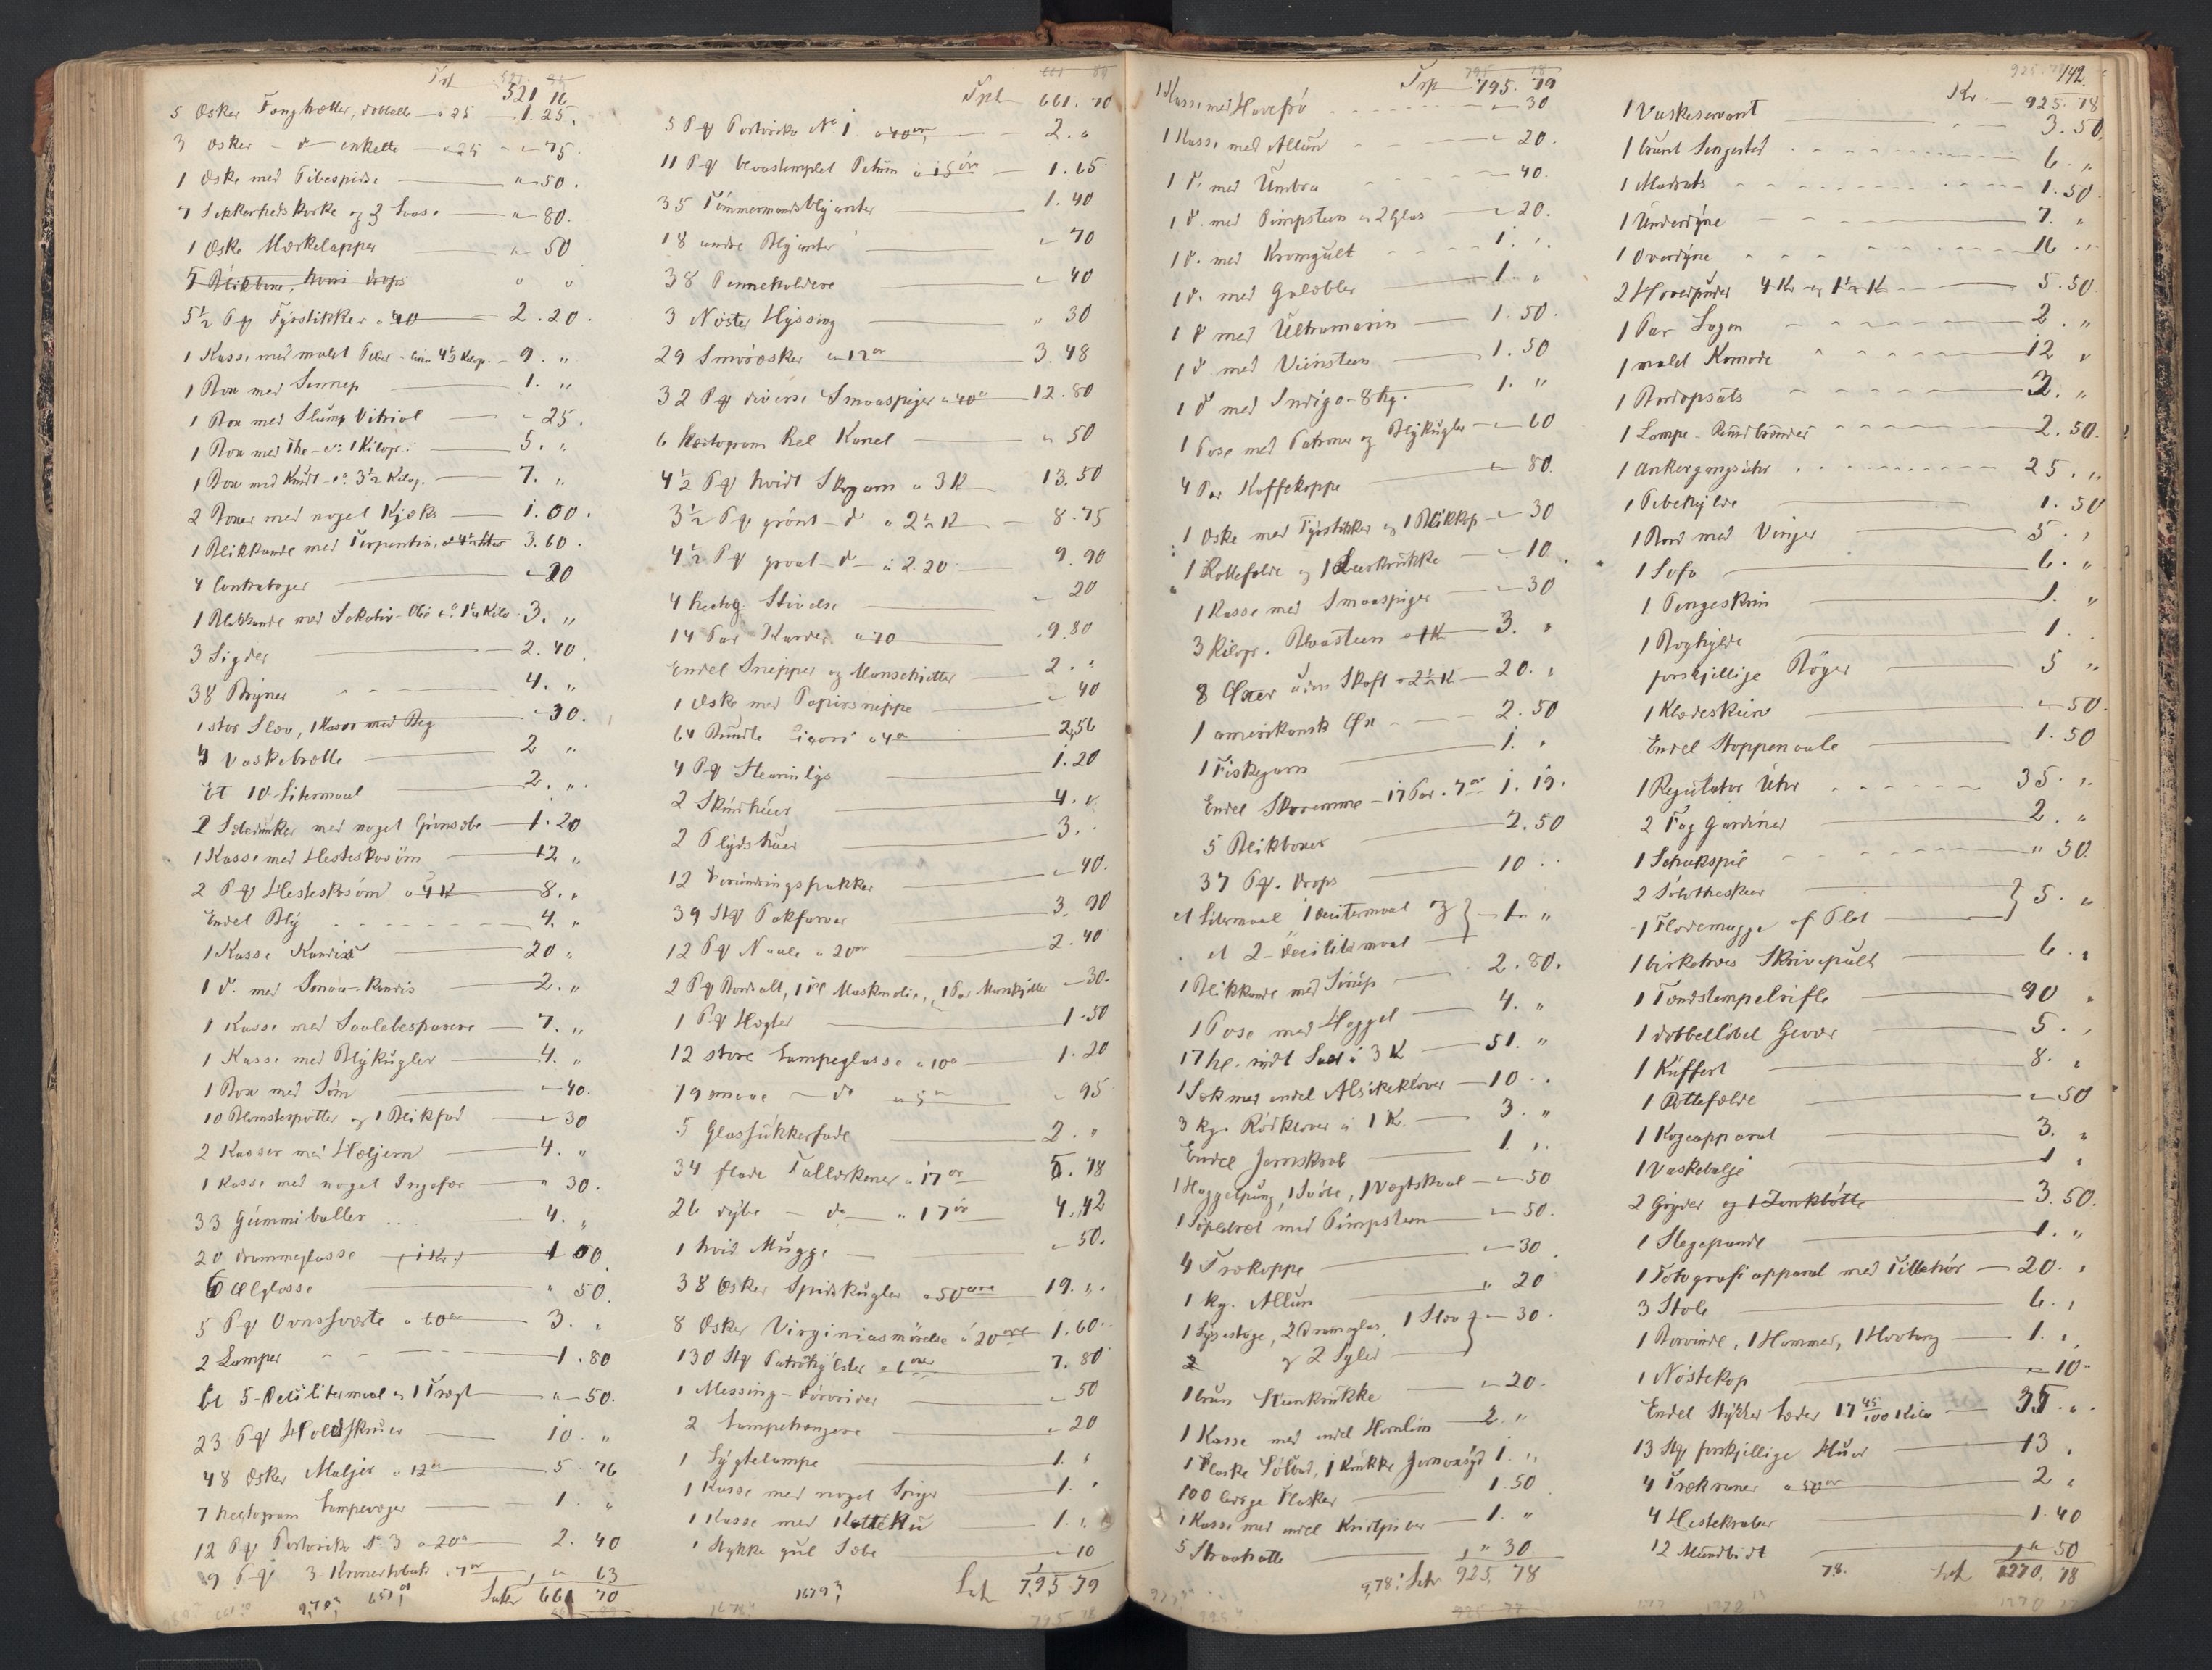 Trp 521 16
5 Æsker Fænghætter, dobbelte a 25 1.25.
3 Æsker - do enkelte a 25 " 75.
1 Æske med Pibespidse " 50.
7 Sikkerhedskorke og 3 Laase " 80.
1 Æske Mærkelapper " 50
" "
5½ Pq Fyrstikker a 40 2.20.
1 Kasse med malet Peber 4½ Kilogr. 9. "
1 Box med Sennep 1. "
1 Box med Slump Vitriol " 25.
1 Box med The 1 Kilogr. 5. "
1 Box med Krudt 3½ Kilog. 7. "
2 Boxer med noget Kjæks 1.00.
1 Blikkande med Terpentin 3.60.
4 Contrabøger " 20
1 Blikkande med Sikativ-Olie 3. "
3 Sigder 2.40.
38 Bryner 4. "
1 stor Slev, 1 Kasse med Beg " 30.
4 Vaskebrætte 2 "
Et 10-Litermaal 2. "
2 Sæbedunker med noget Grønsæbe 1.20
1 Kasse med Hesteskosøm 12 "
2 Pq Hesteskosøm a 4 K 8. "
Endel Bly 4. "
1 Kasse Kandis 20 "
1 do. med Smaa-Kandis 2. "
1 Kasse med Saalebesparere 7. "
1 Kasse med Blykugler 4. "
1 Box med Søm " 40.
10 Blomsterpotter og 1 Blikfad " 30
2 Kasser med Hæljern 4. "
1 Kasse med noget Ingefær " 30.
33 Gummiballer 4. "
20 Drammeglasse 1 00
6 Ølglasse " 50.
5 Pq Ovnssværte a 60 3. "
2 Lamper 1.80
Et 5-Decilitermaal og 1 Tragt " 50.
23 Pq Holdskruer 10. "
48 Æsker Maljer a 12 5.76
7 hectogram Lampevæger 1. "
12 Pq Portoriko No 3 a 20 2.40
9 Pq 3-Kronertobak a 7 " 63
Later 661 70
Trpt 661.70
5 Pq Portoriko No 1 a 40 ør 2. "
11 Pq blaastemplet Petum a 15 ør 1.65
35 Tømmermandsblyanter 1.40
18 andre Blyanter " 70
38 Penneholdere " 40
3 Nøster Hyssing " 30
29 Smøræsker a 12 ør 3.48
32 Pq diverse Smaaspiger a 40 12.80
6 Hectogram hel Kanel " 50
4½ Pq hvidt Skogarn a 3 K 13.50
3½ Pq grønt do a 2½ K 8.75
4½ Pq graat do a 2.20 9.90
4 hectog. Stivelse " 20
14 Par Karder a 70 9.80
Endel Snipper og Manschetter 2. "
1 Æske med Papirsnippe " 40
64 Bundte Cigori a 4 2,56
4 Pq Stearinlys 1.20
2 Skindhuer 4. "
2 Plydshuer 3. "
12 Forundringspakker " 40.
39 Stq Pakfarver 3.90
12 Pq Naale a 20 ør 2.40
2 Pq Bordsalt, 1 Fl Maskinolie, 1 Par Manskjetter " 30.
1 Pq Hægter 1.50
12 store Lampeglasse a 10 1.20
19 smaae do a 5 " 95
5 Glassukkerfade 2. "
34 flade Tallerkener a 17 ør 5.78
26 dybe do a 17 ør 4.42
1 hvid Mugge " 50.
38 Æsker Spidskugler a 50 øre 19. "
8 Æsker Virginiasmørelse a 20 øre 1.60
130 Stq Patronhylster a 6 øre 7.80
1 Messing-Dørvrider " 50
2 Lampehængere " 20
1 Lygtelampe 1. "
1 Kasse med noget Spiger 1. "
1 Kasse med 1. "
1 Stykke gul Sæbe " 10
Lat 795 79
Trp 795.79
1 Kasse med Havefrø " 30
1 Kasse med Allun " 20.
1 do. med Umbra " 40.
1 do. med Pimpsteen og 2 Glas " 20.
1 do. med Kromgult 1. "
1 do. med Galæbler 1. "
1 do med Ultramarin 1.50.
1 do med Viinsteen 1.50
1 do med Indigo - 8 Hg. 1. "
1 Pose med Patroner og Blykugler " 60
4 Par Kaffekoppe " 80.
1 Æske med Fyrstikker og 1 Blikkop " 30
1 Rottefælde og 1 Leerkrukke " 10.
1 Kasse med Smaaspiger " 30
3 Kilogr. Blaasteen a 1 K 3. "
8 Øxer uden Skaft a 2½ K 20. "
1 amerikansk Øx 2.50
1 Fiskegarn 1. "
Endel Skoremme 17 Par a 7 1.19.
5 Blikboxer 2.50
37 Pq. Drops 10 "
et Litermaal 1 Decilitermaal og } 1. "
et 2-Decilitermaal
1 Blikkande med Sirup 2.80.
1 Pose med Haggel 4. "
17 hl. sidt Salt a 3 K 51. "
1 Sæk med endel Alsikekløver 10 "
3 kg. Rødkløver a 1 K. 3. "
Endel Jernskrab 1. "
1 Haggelpung, 1 Svøbe, 1 Vægtskaal " 50
med Pimpsteen " 50.
4 Trækoppe " 30
1 kg. Allun " 20
1 Lysestage, 2 Dramglas, 1 Slev } " 30.
og 2 Syler
1 brun Steenkrukke " 20.
1 Kasse med endel Hornlim 2. "
1 Flaske Sølbad, 1 Krukke 1. "
100 ledige Flasker 1.50
1 Kasse med endel Kridtpiber 1. "
5 Straahatte " 30
Latr 925.78
142.
Kr. 925.78
1 Vaskeservant 3.50
1 brunt Sengested 6. "
1 Madrats 1.50
1 Underdyne 7. "
1 Overdyne 16 "
2 Hovedpuder 4 Kr og 1½ K 5.50
1 Par Lagen 2. "
1 malet Komode 12 "
1 Bordopsats 3. "
1 Lampe - Rundbrænder 2.50.
1 Ankergangsuhr 25. "
1 Pibehylde 1.50
1 Bord med Vinger 5. "
1 Sofa 6. "
1 Pengeskrin 1. "
1 Boghylde 1.
forskjellige Bøger 5 "
1 Klædeskuv " 50.
Endel Stoppenaale 1.50
1 Regulator Uhr 35. "
2 Fag Gardiner 2. "
1 Schakspil " 50.
2 Sølvtheskeer } 5. "
1 Flødemugge af Plet
1 birketræes Skrivepult 6. "
1 Tændstempelrifle 90 "
1 dobbeltløbet Gevær 5. "
1 Kuffert 8. "
1 Rottefælde " 50
1 Kogeapparat 3. "
1 Vaskebalje 1 "
2 Gryder og 1 Zinkbøtte 3.50.
1 Stegepande 1. "
1 Fotografiapparat med Tilbehør 20. "
3 Stole 6. "
1 Borvinde, 1 Hammer, 1 Hovtang 1. "
1 Nøstekop " 10
Endel Stykker Læder 17 45/100 Kilo 35. "
13 Stq forskjellige Huer 13 "
4 Trækraner a 50 ør 2 "
4 Hestekraber 1.40
12 Mundbidt " 50
Lat 1270.78